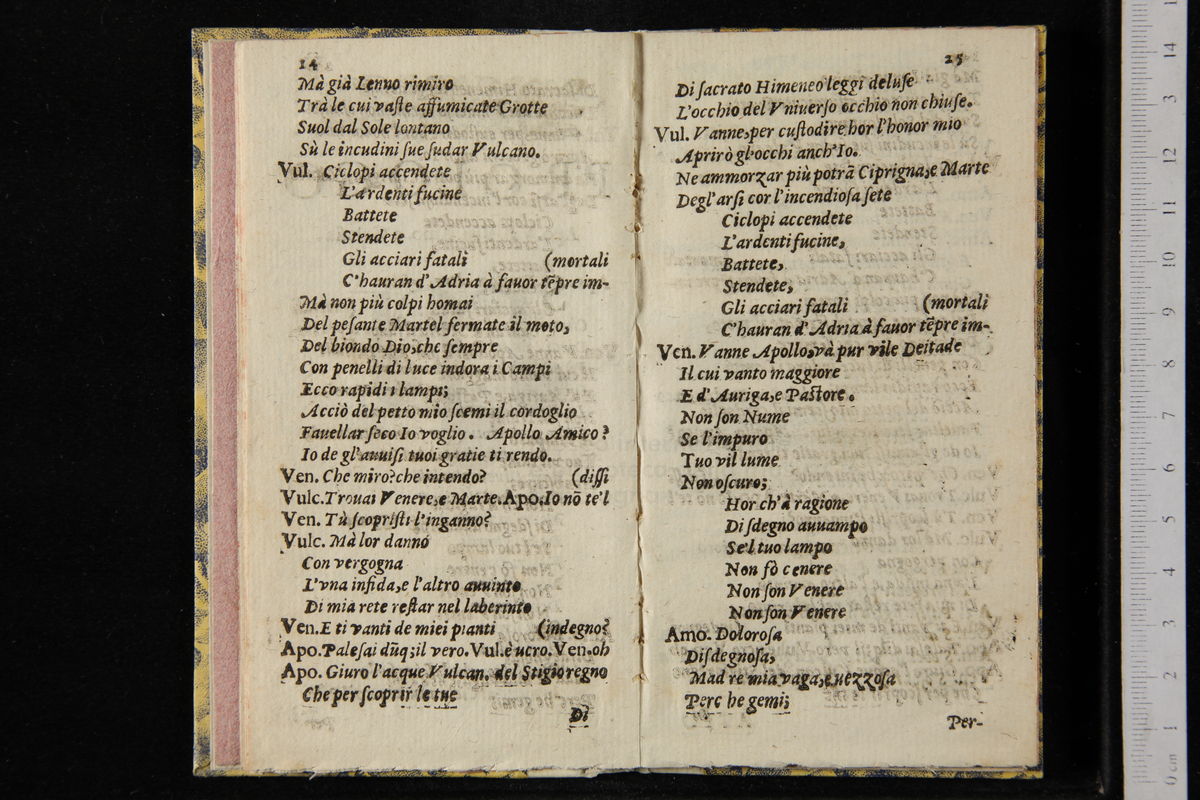 14
Mà già Lenno rimiro
Trà le cui vaſte affumicate Grotte
Suol dal Sole lontano
Sù le incudini ſue ſudar Vulcano.
Vul. Ciclopi accendete
L'ardenti fucine
Battete
Stendete
Gli acciari fatali (mortali
C'hauran d'Adria à fauor tẽpre im-
Mà non più colpi homai
Del peſante Martel fermate il moto,
Del biondo Dio, che ſempre
Con penelli di luce indora i Campi
Ecco rapidi i lampi;
Acciò del petto mio ſcemi il cordoglio
Fauellar ſeco Io voglio. Apollo Amico?
Io de gl'auuiſi tuoi gratie ti rendo.
Ven. Che miro? che intendo? (diſſi
Vulc. Trouai Venere, e Marte. Apo. Io nõ te'l
Ven. Tù ſcopriſti l'inganno?
Vulc. Mà lor danno
Con vergogna
L'vna infida, e l'altro auuinto
Di mia rete reſtar nel laberinto
Ven. E ti vanti de miei pianti (indegno?
Apo. Paleſai dũq; il vero. Vul. è uero. Ven. oh
Apo. Giuro l'acque Vulcan. del Stigio regno
Che per ſcoprir le tue
Di
25
Di ſacrato Himeneo leggi deluſe
L'occhio del Vniuerſo occhio non chiuſe.
Vul. Vanne, per cuſtodire hor l'honor mio
Aprirò gl'occhi anch'Io.
Ne ammorzar più potrã Ciprigna, e Marte
Degl'arſi cor l'incendioſa ſete
Ciclopi accendete
L'ardenti fucine,
Battete,
Stendete,
Gli acciari fatali (mortali
C'hauran d'Adria à fauor tẽpre im-
Ven. Vanne Apollo, và pur vile Deitade
Il cui vanto maggiore
E d'Auriga, e Paſtore.
Non ſon Nume
Se l'impuro
Tuo vil lume
Non oſcuro;
Hor ch'à ragione
Di ſdegno auuampo
Se'l tuo lampo
Non fò cenere
Non ſon Venere
Non ſon Venere
Amo. Doloroſa
Diſdegnoſa,
Mad re mia vaga, e uezzoſa
Perc he gemi;
Per-